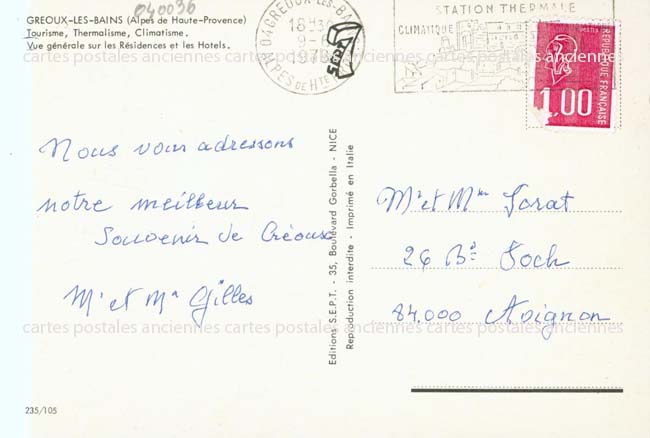 040036
GREOUX-LES-BAINS (Alpes de Haute-Provence)
Tourisme, Thermalisme, Climatisme.
Vue générale sur les Résidences et les Hotels.
04 GREOUX-LES-BA
18H30
9-
197
ALPES DE HTE
STATION THERMALE
CLIMATIQUE
POSTES
1,00
REPUBLIQUE FRANÇAISE
Nous vous adressons
notre meilleur
Souvenir de Gréoux
Mr et Me Gilles
Editions S.E.P.T. - 35, Boulevard Gorbella - NICE
Reproduction interdite - Imprimé en Italie
Mr et Mme Forat
26 Bd Foch
84.000 Avignon
cartes postales anciennes cartes postales anciennes cartes postales anciennes
cartes postales anciennes cartes postales anciennes cartes postales anciennes
cartes postales anciennes cartes postales anciennes cartes postales anciennes
235/105